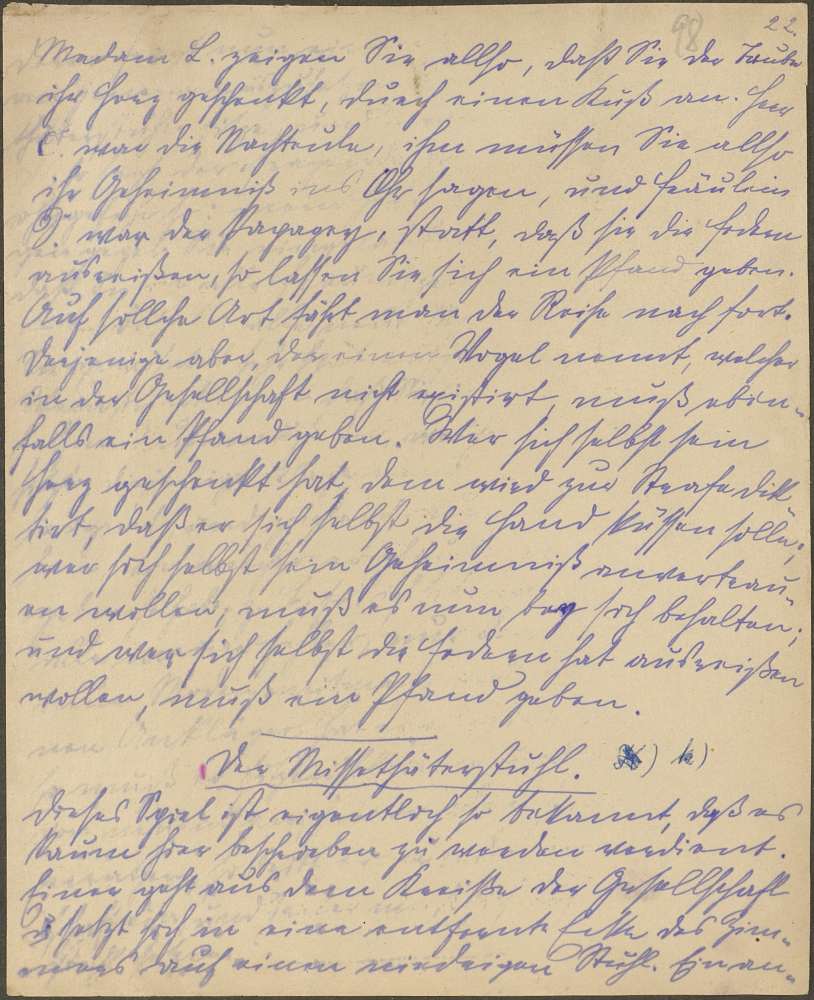 98 22.
Madam L. zeigen Sie allso, daß Sie der Taube
ihr Herz geschenkt, durch einen Kuß an. Herr
C. war die Nachteule, ihm müssen Sie allso
ihr Geheimniß ins Ohr sagen, und Fräulein
D. war der Papagey, statt, daß sie die Federn
ausreißen, so lassen Sie sich ein Pfand geben.
Auf sollche Art fährt man der Reihe nach fort.
Derjenige aber, der einen Vogel nennt, welcher
in der Gesellschaft nicht existirt, muß eben-
falls ein Pfand geben. Wer sich selbst sein
Herz geschenkt hat, dem wird zur Strafe dik
tirt, daß er sich selbst die Hand küssen solle;
wer sich selbst sein Geheimniß anvertrau-
en wollen, muß es nun bey sich behalten;
und wer sich selbst die Federn hat ausreißen
wollen, muß ein Pfand geben.
Der Missethäterstuhl. )
Dieses Spiel ist eigentlich so bekannt, daß es
kaum hier beschrieben zu werden verdient.
Einer geht aus dem Kreiße der Gesellschaft
u setzt sich in eine entfernte Ecke des Zim-
mers auf einen niedrigen Stuhl. Ein an-